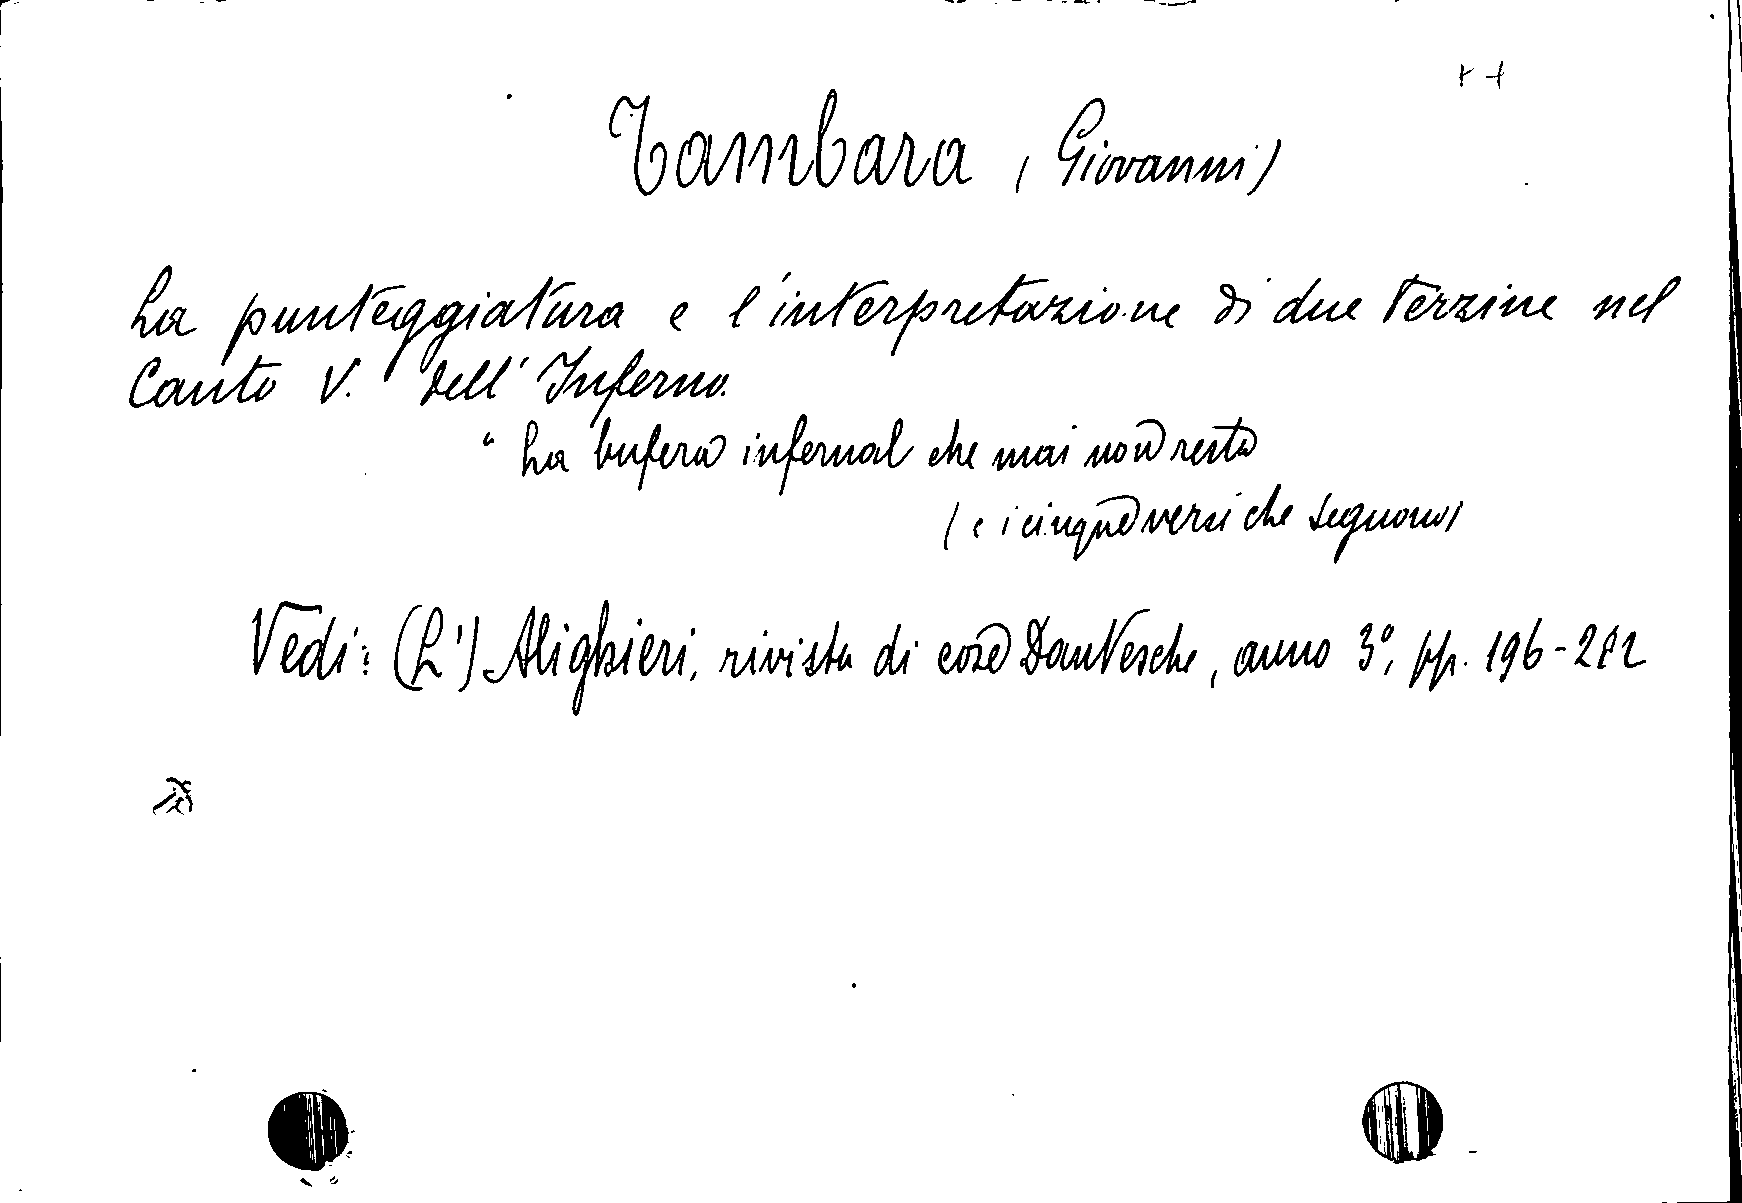 Tambara (Giovanni)
La punteggiatura e l'interpretazione di due terzine nel
Canto V. dell'Inferno.
" La bufera infernal che mai non resta
( e i cinque versi che seguono)
Vedi: (L') Alighieri, rivista di cose Dantesche, anno 3°, pp.